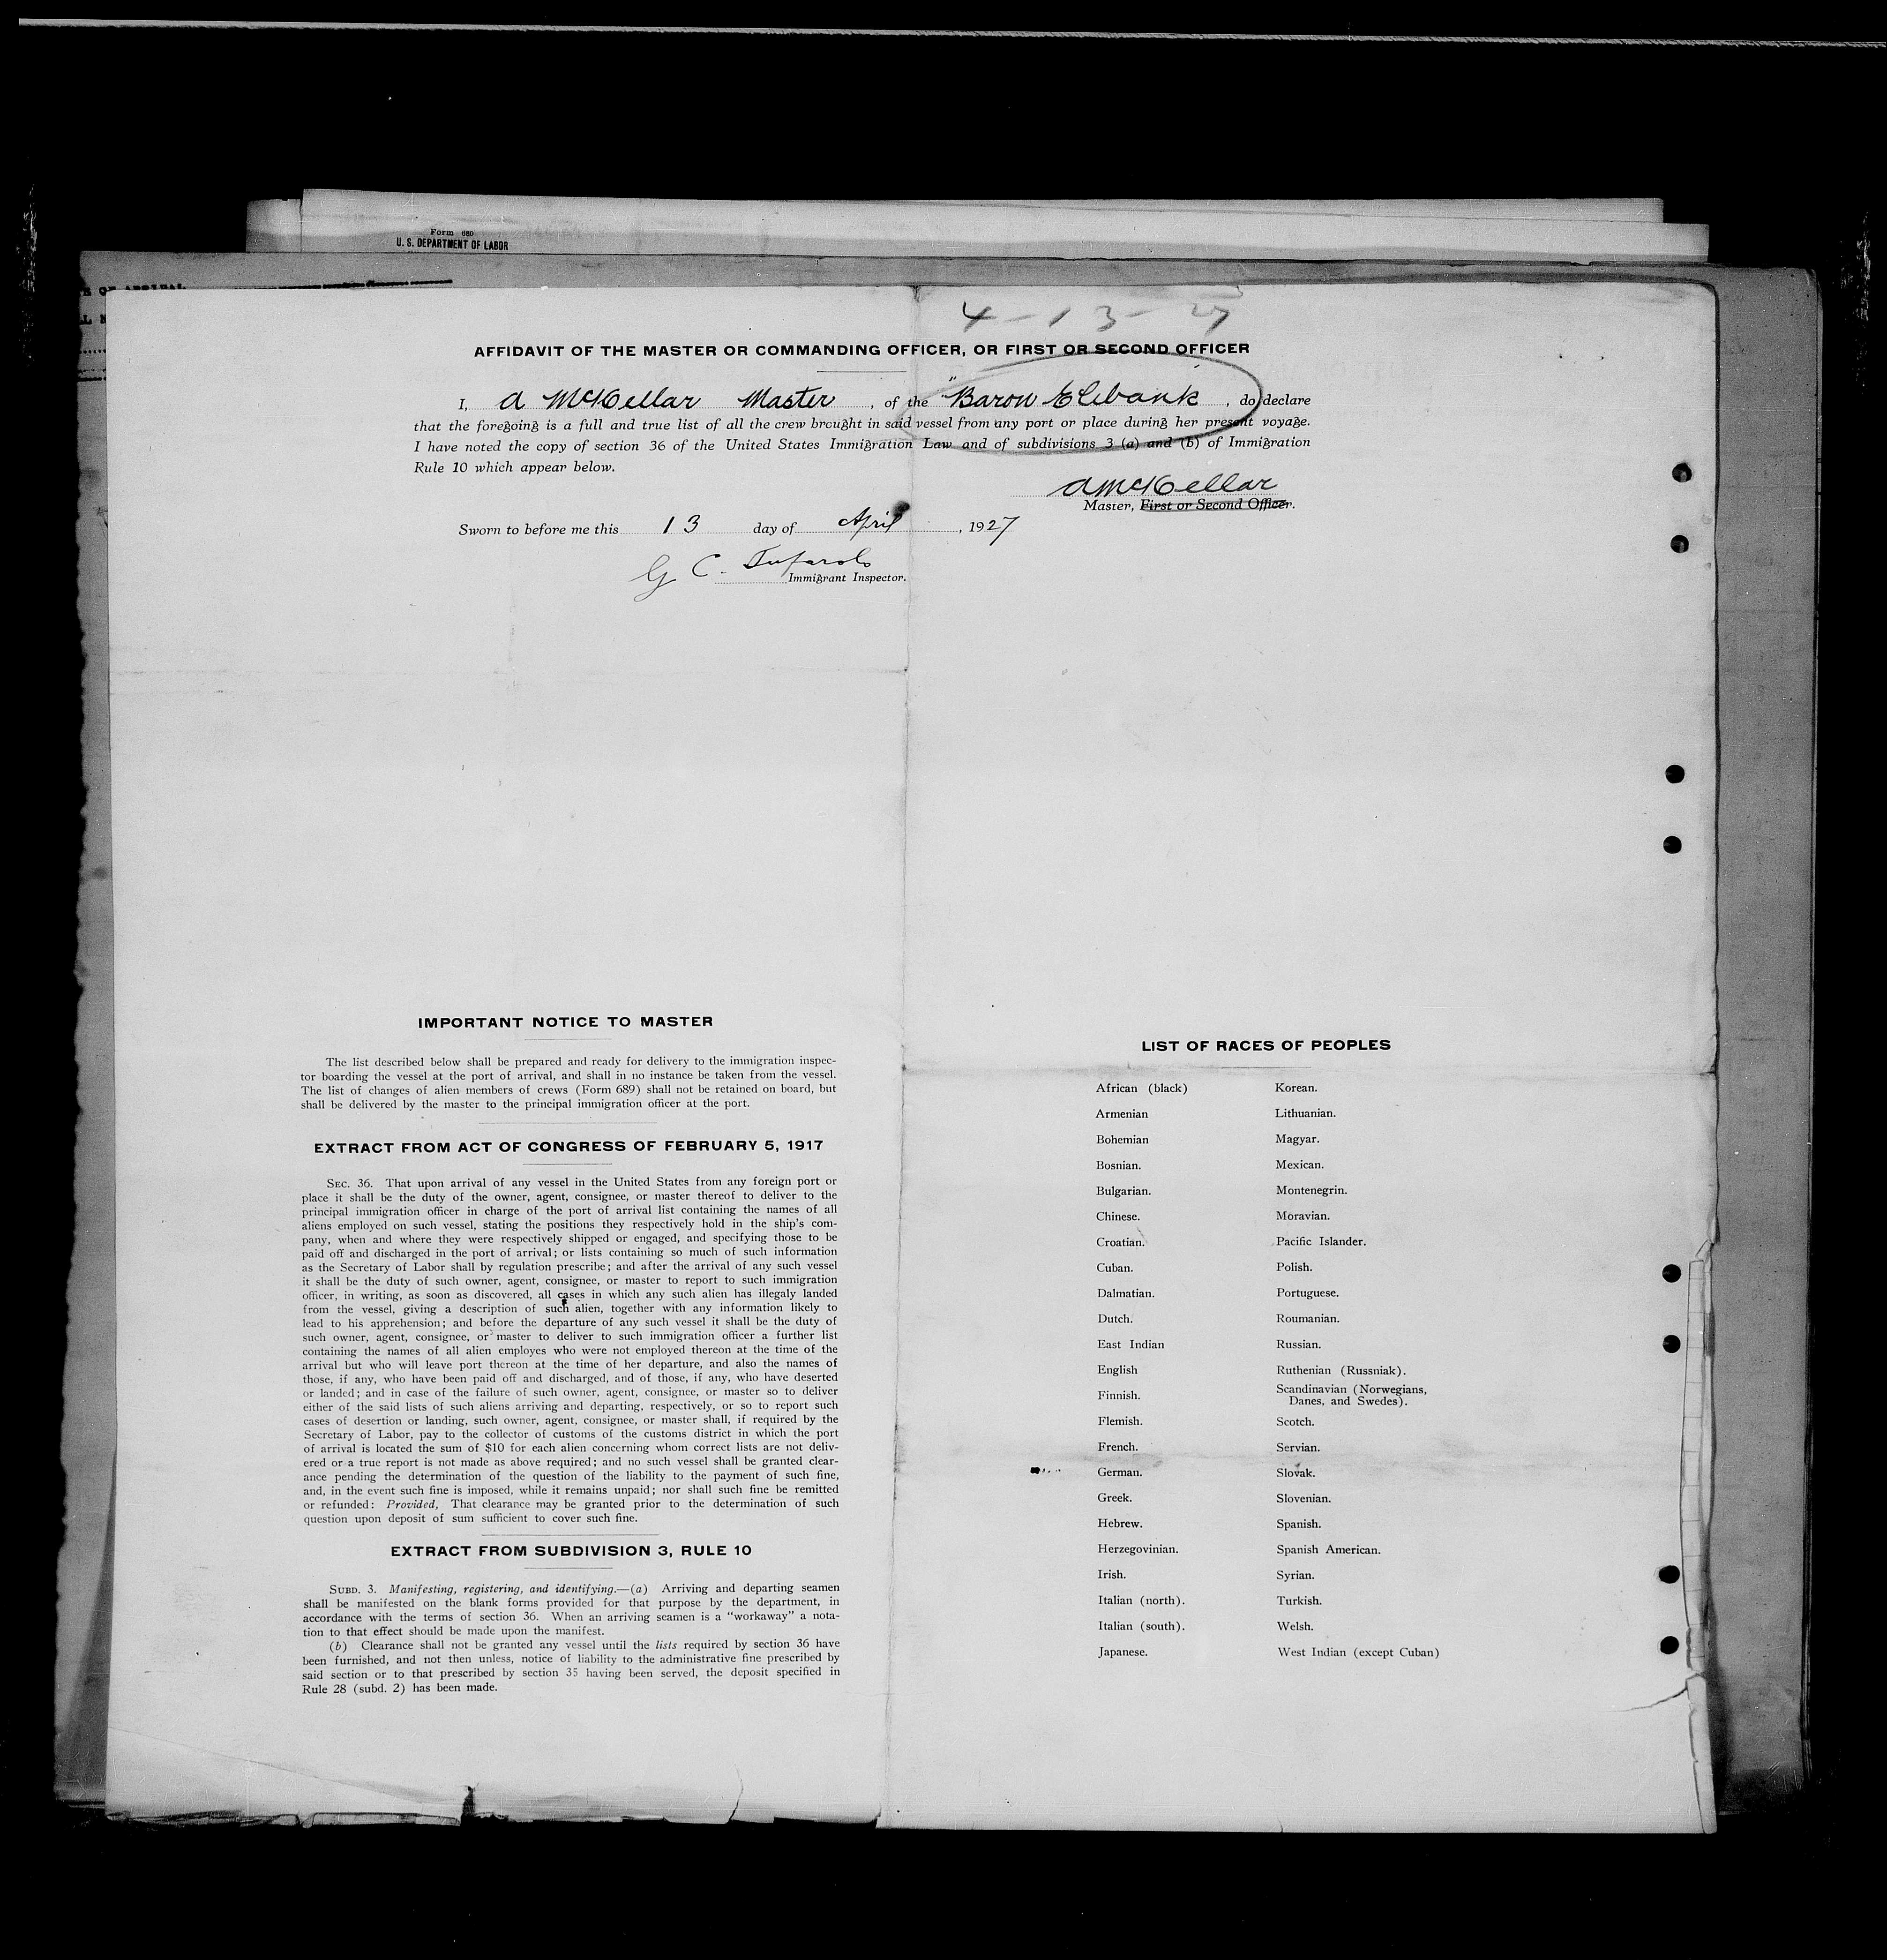 Form 680
U. S. DEPARTMENT OF LABOR
OF ARRIVAL
4-13-27
AFFIDAVIT OF THE MASTER OR COMMANDING OFFICER, OR FIRST OR SECOND OFFICER
I, A McKellar Master, of the "Baron Elibank", do declare
that the foregoing is a full and true list of all the crew brought in said vessel from any port or place during her present voyage.
I have noted the copy of section 36 of the United States Immigration Law and of subdivisions 3 (a) and (b) of Immigration
Rule 10 which appear below.
A McKellar
Master, First or Second Officer.
Sworn to before me this 13 day of April, 1927
G C.
Immigrant Inspector.
IMPORTANT NOTICE TO MASTER
The list described below shall be prepared and ready for delivery to the immigration inspec-
tor boarding the vessel at the port of arrival, and shall in no instance be taken from the vessel.
The list of changes of alien members of crews (Form 689) shall not be retained on board, but
shall be delivered by the master to the principal immigration officer at the port.
EXTRACT FROM ACT OF CONGRESS OF FEBRUARY 5, 1917
SEC. 36. That upon arrival of any vessel in the United States from any foreign port or
place it shall be the duty of the owner, agent, consignee, or master thereof to deliver to the
principal immigration officer in charge of the port of arrival list containing the names of all
aliens employed on such vessel, stating the positions they respectively hold in the ship's com-
pany, when and where they were respectively shipped or engaged, and specifying those to be
paid off and discharged in the port of arrival; or lists containing so much of such information
as the Secretary of Labor shall by regulation prescribe; and after the arrival of any such vessel
it shall be the duty of such owner, agent, consignee, or master to report to such immigration
officer, in writing, as soon as discovered, all cases in which any such alien has illegaly landed
from the vessel, giving a description of such alien, together with any information likely to
lead to his apprehension; and before the departure of any such vessel it shall be the duty of
such owner, agent, consignee, or master to deliver to such immigration officer a further list
containing the names of all alien employes who were not employed thereon at the time of the
arrival but who will leave port thereon at the time of her departure, and also the names of
those, if any, who have been paid off and discharged, and of those, if any, who have deserted
or landed; and in case of the failure of such owner, agent, consignee, or master so to deliver
either of the said lists of such aliens arriving and departing, respectively, or so to report such
cases of desertion or landing, such owner, agent, consignee, or master shall, if required by the
Secretary of Labor, pay to the collector of customs of the customs district in which the port
of arrival is located the sum of $10 for each alien concerning whom correct lists are not deliv-
ered or a true report is not made as above required; and no such vessel shall be granted clear-
ance pending the determination of the question of the liability to the payment of such fine,
and, in the event such fine is imposed, while it remains unpaid; nor shall such fine be remitted
or refunded: Provided, That clearance may be granted prior to the determination of such
question upon deposit of sum sufficient to cover such fine.
EXTRACT FROM SUBDIVISION 3, RULE 10
SUBD. 3. Manifesting, registering, and identifying.—(a) Arriving and departing seamen
shall be manifested on the blank forms provided for that purpose by the department, in
accordance with the terms of section 36. When an arriving seamen is a "workaway" a nota-
tion to that effect should be made upon the manifest.
(b) Clearance shall not be granted any vessel until the lists required by section 36 have
been furnished, and not then unless, notice of liability to the administrative fine prescribed by
said section or to that prescribed by section 35 having been served, the deposit specified in
Rule 28 (subd. 2) has been made.
LIST OF RACES OF PEOPLES
African (black)
Armenian
Bohemian
Bosnian.
Bulgarian.
Chinese.
Croatian.
Cuban.
Dalmatian.
Dutch.
East Indian
English
Finnish.
Flemish.
French.
German.
Greek.
Hebrew.
Herzegovinian.
Irish.
Italian (north).
Italian (south).
Japanese.
Korean.
Lithuanian.
Magyar.
Mexican.
Montenegrin.
Moravian.
Pacific Islander.
Polish.
Portuguese.
Roumanian.
Russian.
Ruthenian (Russniak).
Scandinavian (Norwegians,
Danes, and Swedes).
Scotch.
Servian.
Slovak.
Slovenian.
Spanish.
Spanish American.
Syrian.
Turkish.
Welsh.
West Indian (except Cuban)